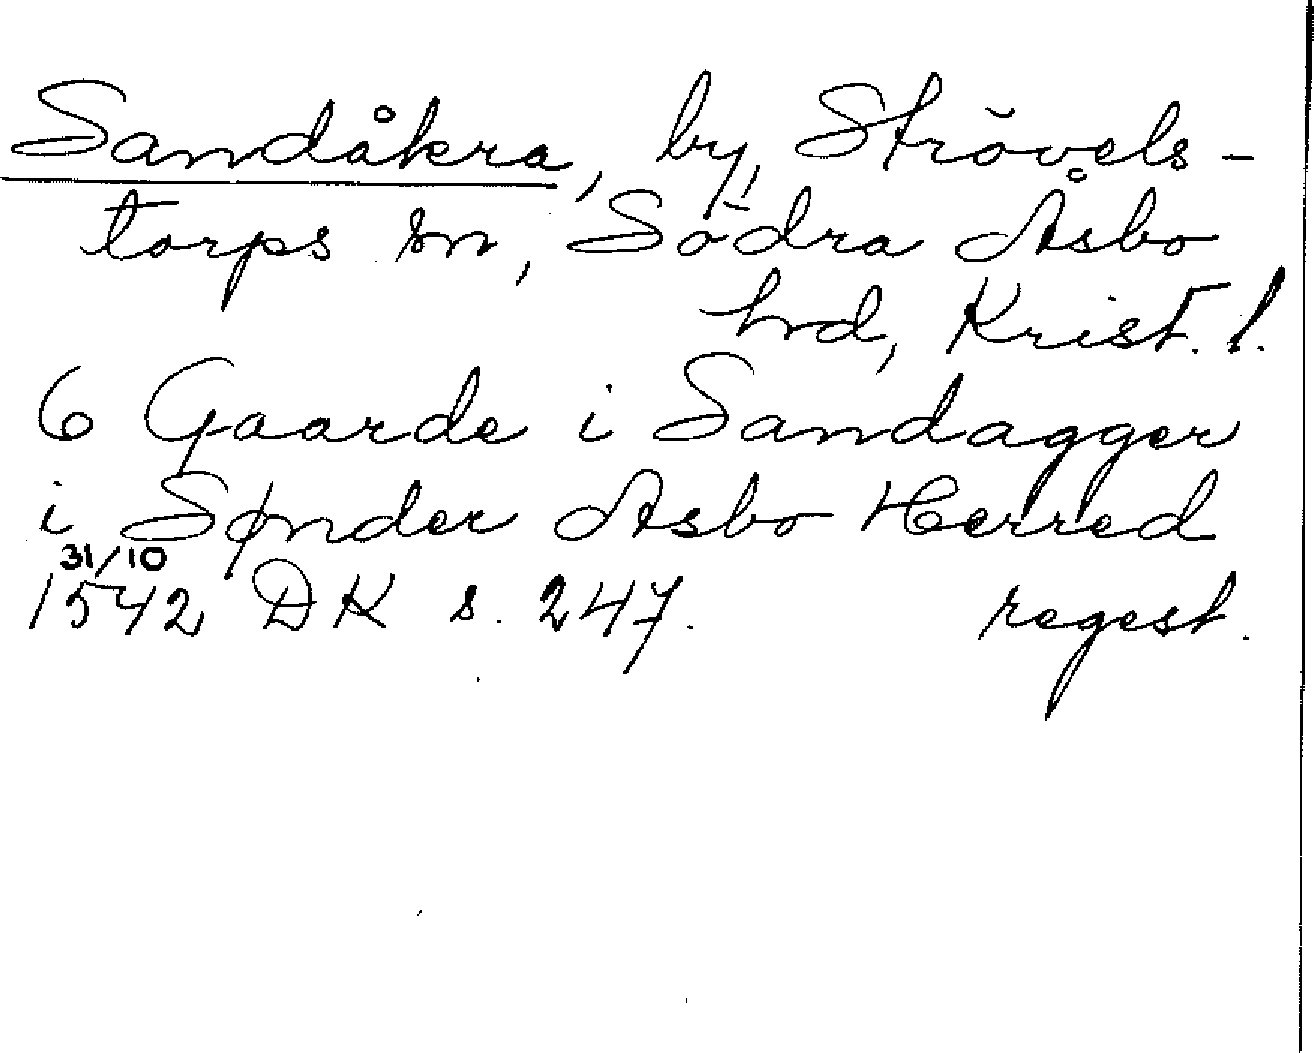 Sandåkra, by, Strövels-
torps sn, Södra Åsbo
hrd, Krist. l.
6 Gaarde i Sandagger
i Sønder Asbo Herred
31/10
1542 DK s. 247. regest.